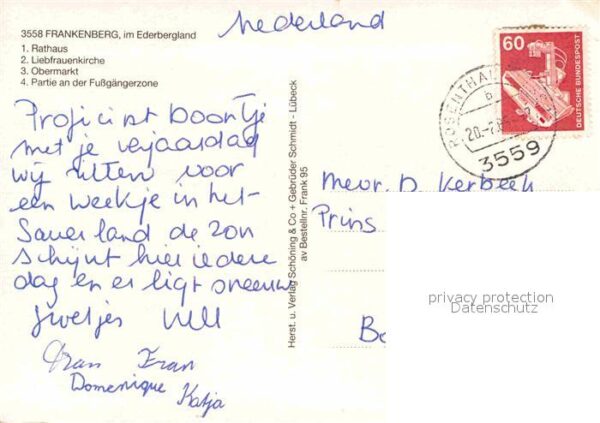 Nederland
3558 FRANKENBERG, im Ederbergland
1. Rathaus
2. Liebfrauenkirche
3. Obermarkt
4. Partie an der Fußgängerzone
Proficiat Doortje
met je verjaardag
wij zitten voor
een weekje in het
Sauerland de zon
schijnt hier iedere
dag en er ligt sneeuw
Fran Fran
Domenique
Katja
Herst. u. Verlag Schöning & Co + Gebrüder Schmidt - Lübeck
av Bestellnr. Frank 95
60
DEUTSCHE BUNDESPOST
ROSENTHAL
3559
Mevr. D. Kerbeek
Prins
privacy protection
Datenschutz